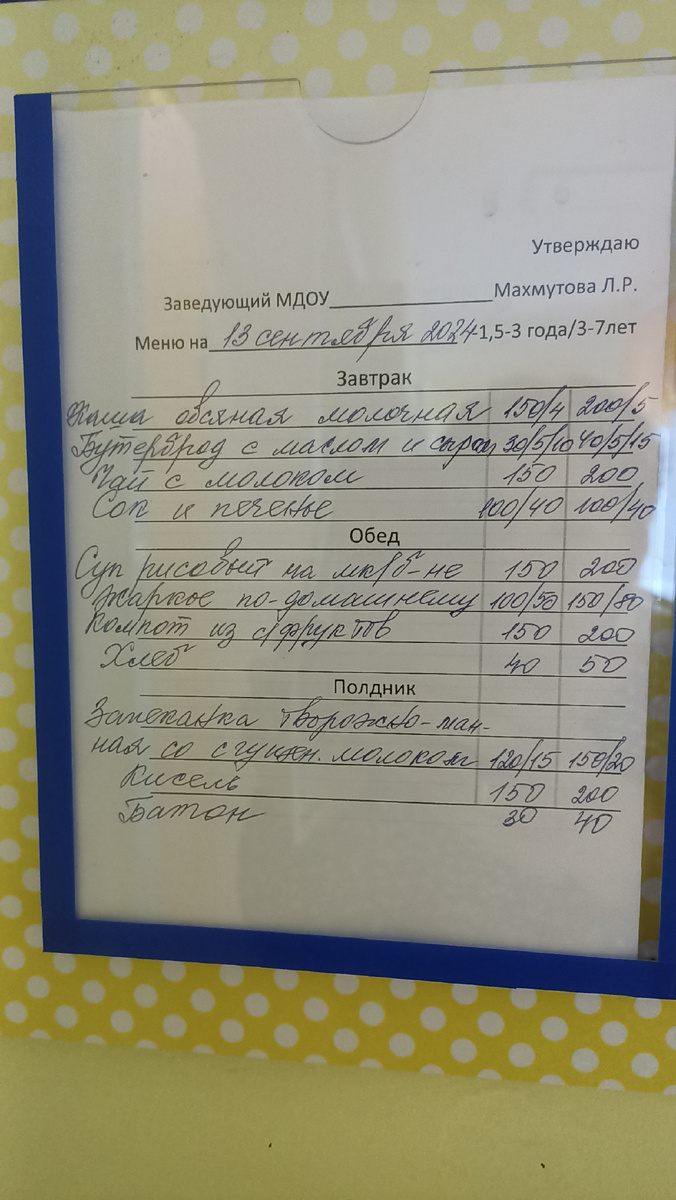 Утверждаю
Заведующий МДОУ______________Махмутова Л.Р.
Меню на 13 сентября 2024 1,5-3 года/3-7лет
Завтрак
Каша овсяная молочная 150/4 200/5
Бутерброд с маслом и сыром 30/5/10 40/5/15
Чай с молоком 150 200
Сок и печенье 100/40 100/40
Обед
Суп рисовый на мк/б-не 150 200
Жаркое по-домашнему 100/50 150/80
Компот из с/фруктов 150 200
Хлеб 40 50
Полдник
Запеканка творожно-ман-
ная со сгущен. молоком 120/15 150/20
Кисель 150 200
Батон 30 40